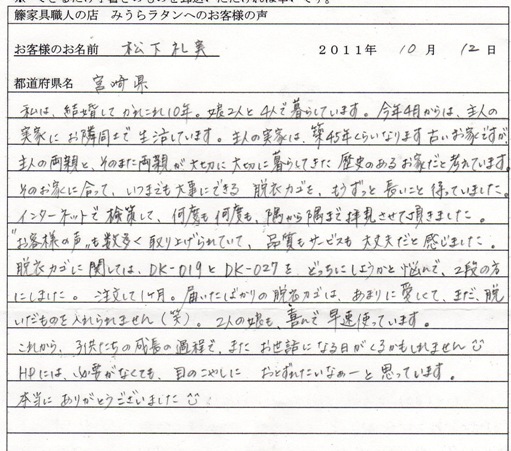 籐家具職人の店 みうらラタンへのお客様の声
お客様のお名前 松下礼実 2011年 10月 12日
都道府県名 宮崎県
私は、結婚して かれこれ10年。娘2人と4人で暮らしています。今年4月からは、主人の
実家に お隣同士で 生活しています。主人の実家は、築45年くらいなります古いお家ですが、
主人の両親と、そのまた両親が大切に大切に暮らしてきた 歴史のあるお家だと考えています。
そのお家に合って、いつまでも大事にできる 脱衣カゴを、もうずっと長いこと待っていました。
インターネットで検索して、何度も何度も、隅から隅まで拝見させて頂きました。
"お客様の声"も数多く取り上げられていて、品質もサービスも大丈夫だと感じました。
脱衣カゴに関しては、DK-019とDK-027を どっちにしようかと悩んで、2段の方
にしました。注文して1ヶ月。届いたばかりの脱衣カゴは、あまりに愛しくて、まだ、脱
いだものを入れられません(笑)。2人の娘も、喜んで早速使っています。
これから、子供たちの成長の過程で、またお世話になる日がくるかもしれません
HPには、必要がなくても、目のこやしに おとずれたいなぁーと思っています。
本当に ありがとうございました